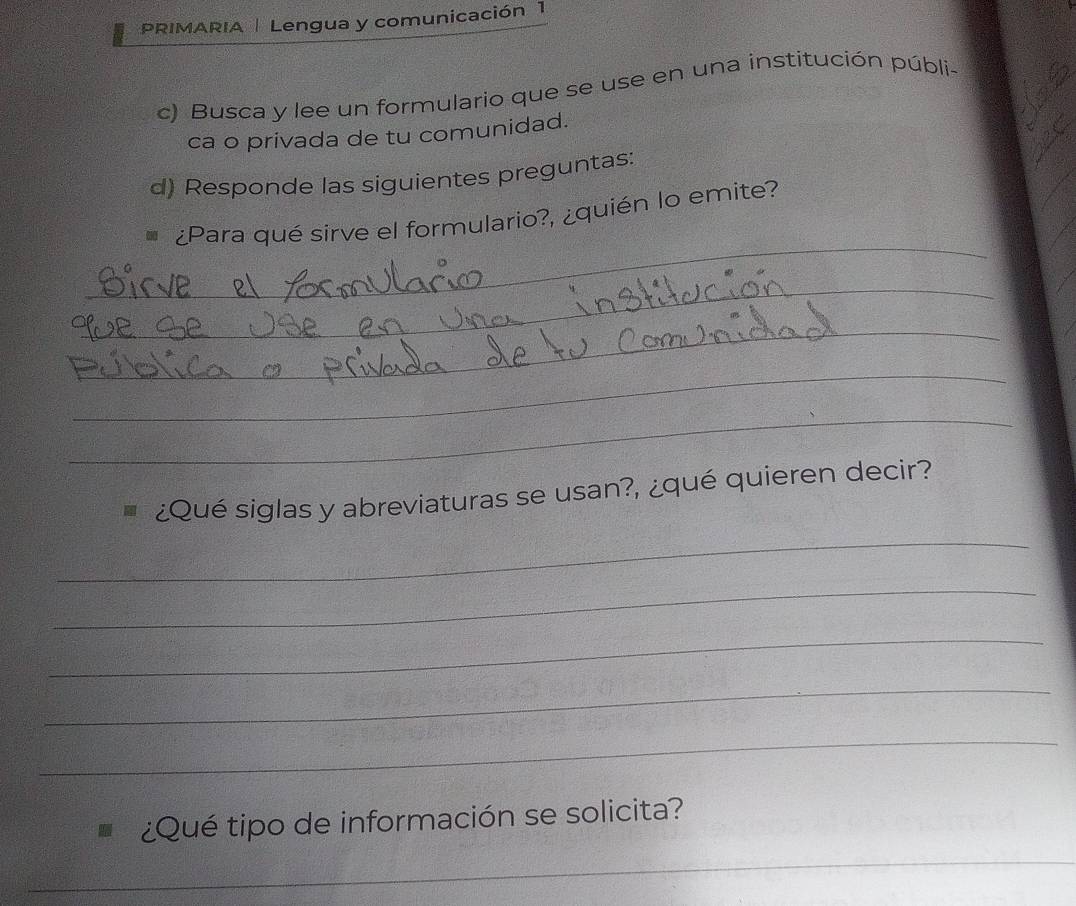 PRIMARIA | Lengua y comunicación 1
c) Busca y lee un formulario que se use en una institución públi-
ca o privada de tu comunidad.
d) Responde las siguientes preguntas:
¿Para qué sirve el formulario?, ¿quién lo emite?
Sirve el formulario
que se use en una institución
pública o privada de tu comunidad
¿Qué siglas y abreviaturas se usan?, ¿qué quieren decir?
¿Qué tipo de información se solicita?